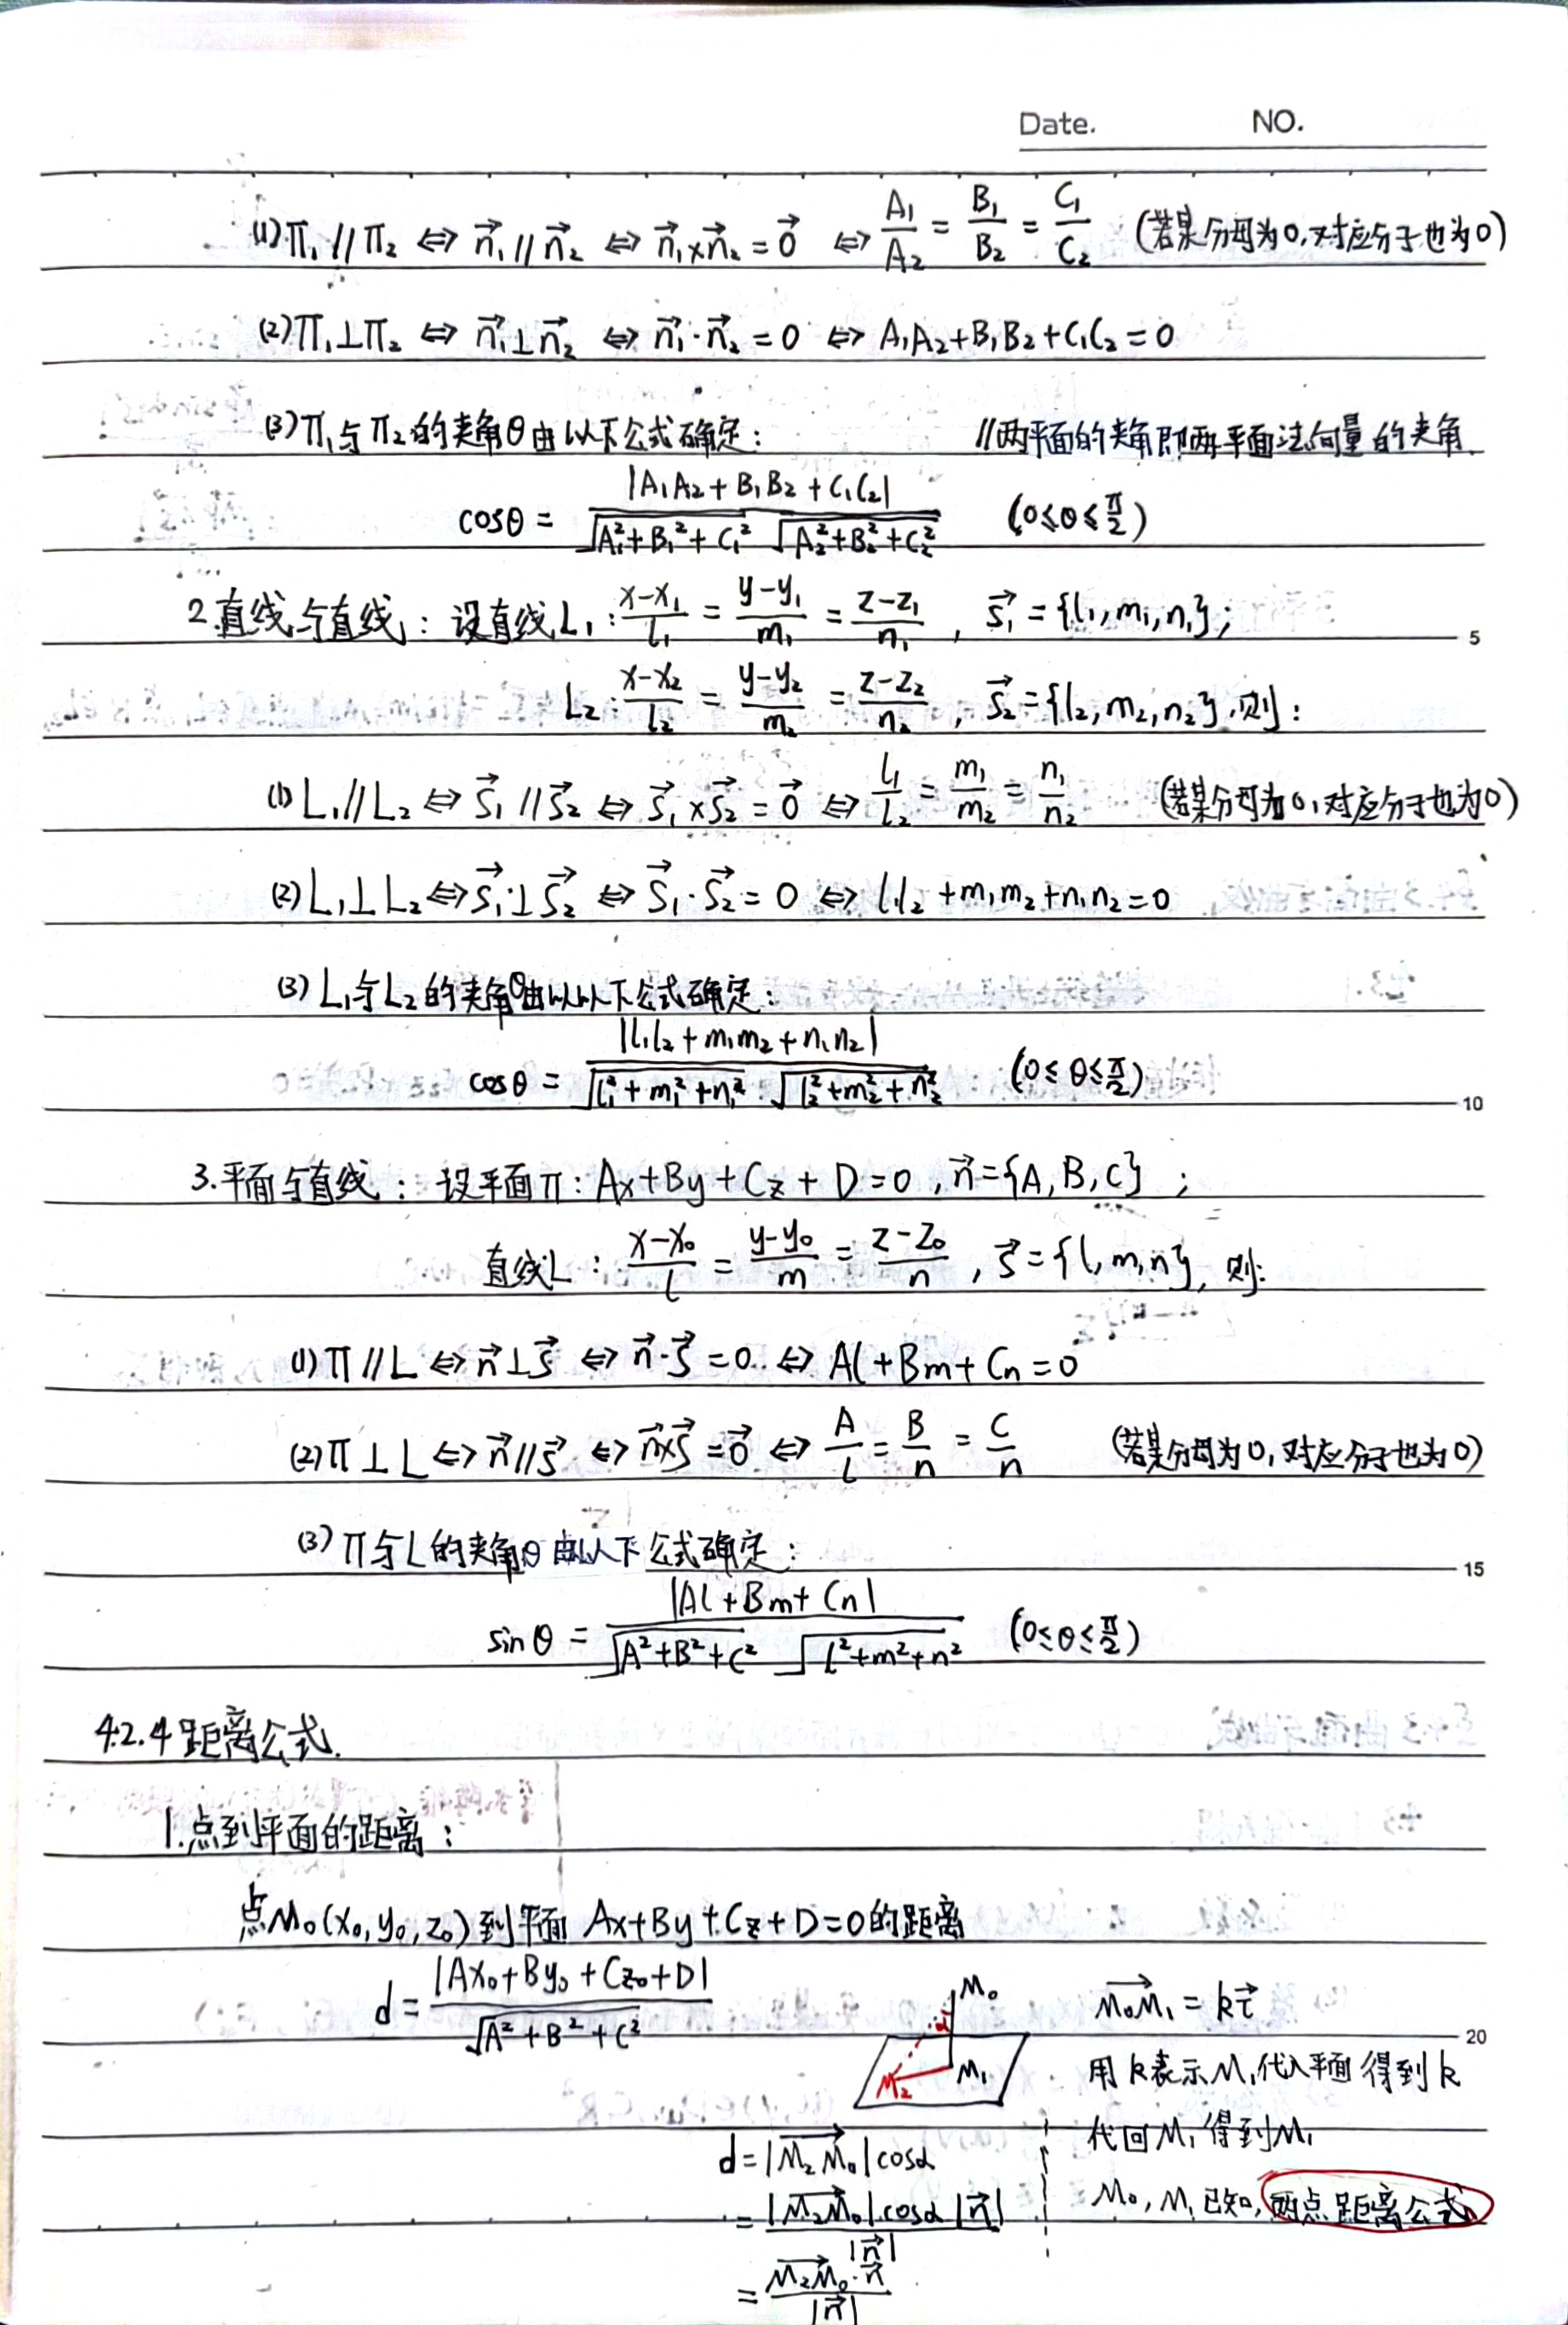 Date. NO.
(1) π₁ // π₂ ⇔ n⃗₁ // n⃗₂ ⇔ n⃗₁×n⃗₂ = 0⃗ ⇔ A₁/A₂ = B₁/B₂ = C₁/C₂ (若某分母为0,对应分子也为0)
(2) π₁⊥π₂ ⇔ n⃗₁⊥n⃗₂ ⇔ n⃗₁·n⃗₂ = 0 ⇔ A₁A₂+B₁B₂+C₁C₂ = 0
(3) π₁与π₂的夹角θ由以下公式确定: //两平面的夹角即两平面法向量的夹角.
cosθ = |A₁A₂+B₁B₂+C₁C₂| / (√(A₁²+B₁²+C₁²) √(A₂²+B₂²+C₂²)) (0≤θ≤π/2)
2.直线与直线: 设直线L₁: (x-x₁)/l₁ = (y-y₁)/m₁ = (z-z₁)/n₁ , s⃗₁ = {l₁, m₁, n₁};
5
L₂: (x-x₂)/l₂ = (y-y₂)/m₂ = (z-z₂)/n₂ , s⃗₂ = {l₂, m₂, n₂},则:
(1) L₁ // L₂ ⇔ s⃗₁ // s⃗₂ ⇔ s⃗₁×s⃗₂ = 0⃗ ⇔ l₁/l₂ = m₁/m₂ = n₁/n₂ (若某分母为0,对应分子也为0)
(2) L₁⊥L₂ ⇔ s⃗₁⊥s⃗₂ ⇔ s⃗₁·s⃗₂ = 0 ⇔ l₁l₂+m₁m₂+n₁n₂=0
(3) L₁与L₂的夹角θ由以以下公式确定:
cosθ = |l₁l₂+m₁m₂+n₁n₂| / (√(l₁²+m₁²+n₁²) √(l₂²+m₂²+n₂²)) (0≤θ≤π/2)
10
3.平面与直线: 设平面π: Ax+By+Cz+D=0, n⃗={A,B,C};
直线L: (x-x₀)/l = (y-y₀)/m = (z-z₀)/n , s⃗={l,m,n}, 则:
(1) π // L ⇔ n⃗⊥s⃗ ⇔ n⃗·s⃗ = 0 ⇔ Al+Bm+Cn=0
(2) π⊥L ⇔ n⃗ // s⃗ ⇔ n⃗×s⃗ = 0⃗ ⇔ A/l = B/n = C/n (若某分母为0,对应分子也为0)
(3) π与L的夹角θ由以下公式确定:
15
sinθ = |Al+Bm+Cn| / (√(A²+B²+C²) √(l²+m²+n²)) (0≤θ≤π/2)
4.2.4 距离公式.
1.点到平面的距离:
点M₀(x₀,y₀,z₀)到平面 Ax+By+Cz+D=0的距离
d = |Ax₀+By₀+Cz₀+D| / √(A²+B²+C²)
M₀
α
M₁
M₂
M₀M₁→ = kτ⃗
20
用k表示M₁代入平面得到k
代回M₁得到M₁
M₀, M₁已知, 两点距离公式
d = |M₂M₀→| cosα
= |M₂M₀→| cosα |n⃗| / |n⃗|
= M₂M₀→·n⃗ / |n⃗|